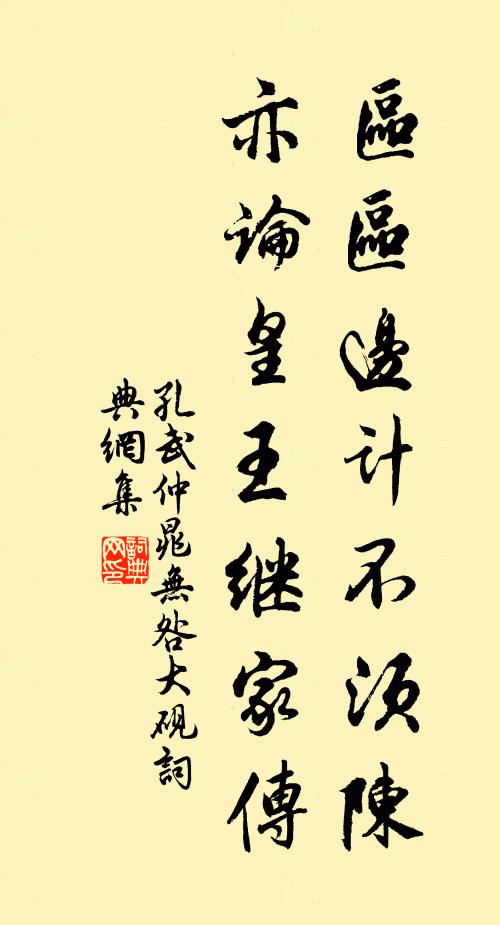 區區邊計不須陳
亦論皇王继家傳
孔武仲晁無咎大硯詞
典網集
詞典網印